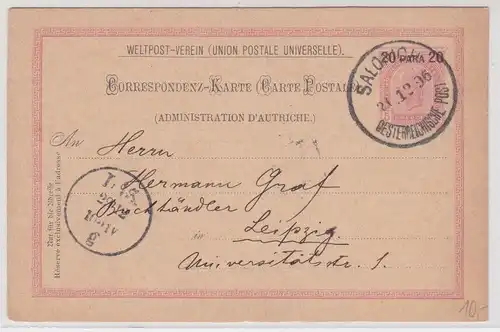 WELTPOST-VEREIN (UNION POSTALE UNIVERSELLE).
20 PARA 20
CORRESPONDENZ-KARTE (CARTE POSTALE)
(ADMINISTRATION D'AUTRICHE.)
21.12.96
OESTERREICHISCHE POST
An Herrn
Hermann Graf
Buchhändler
in Leipzig
Universitätsstr. 1.
Nur für die Adresse
Réservé exclusivement à l'adresse
10,-